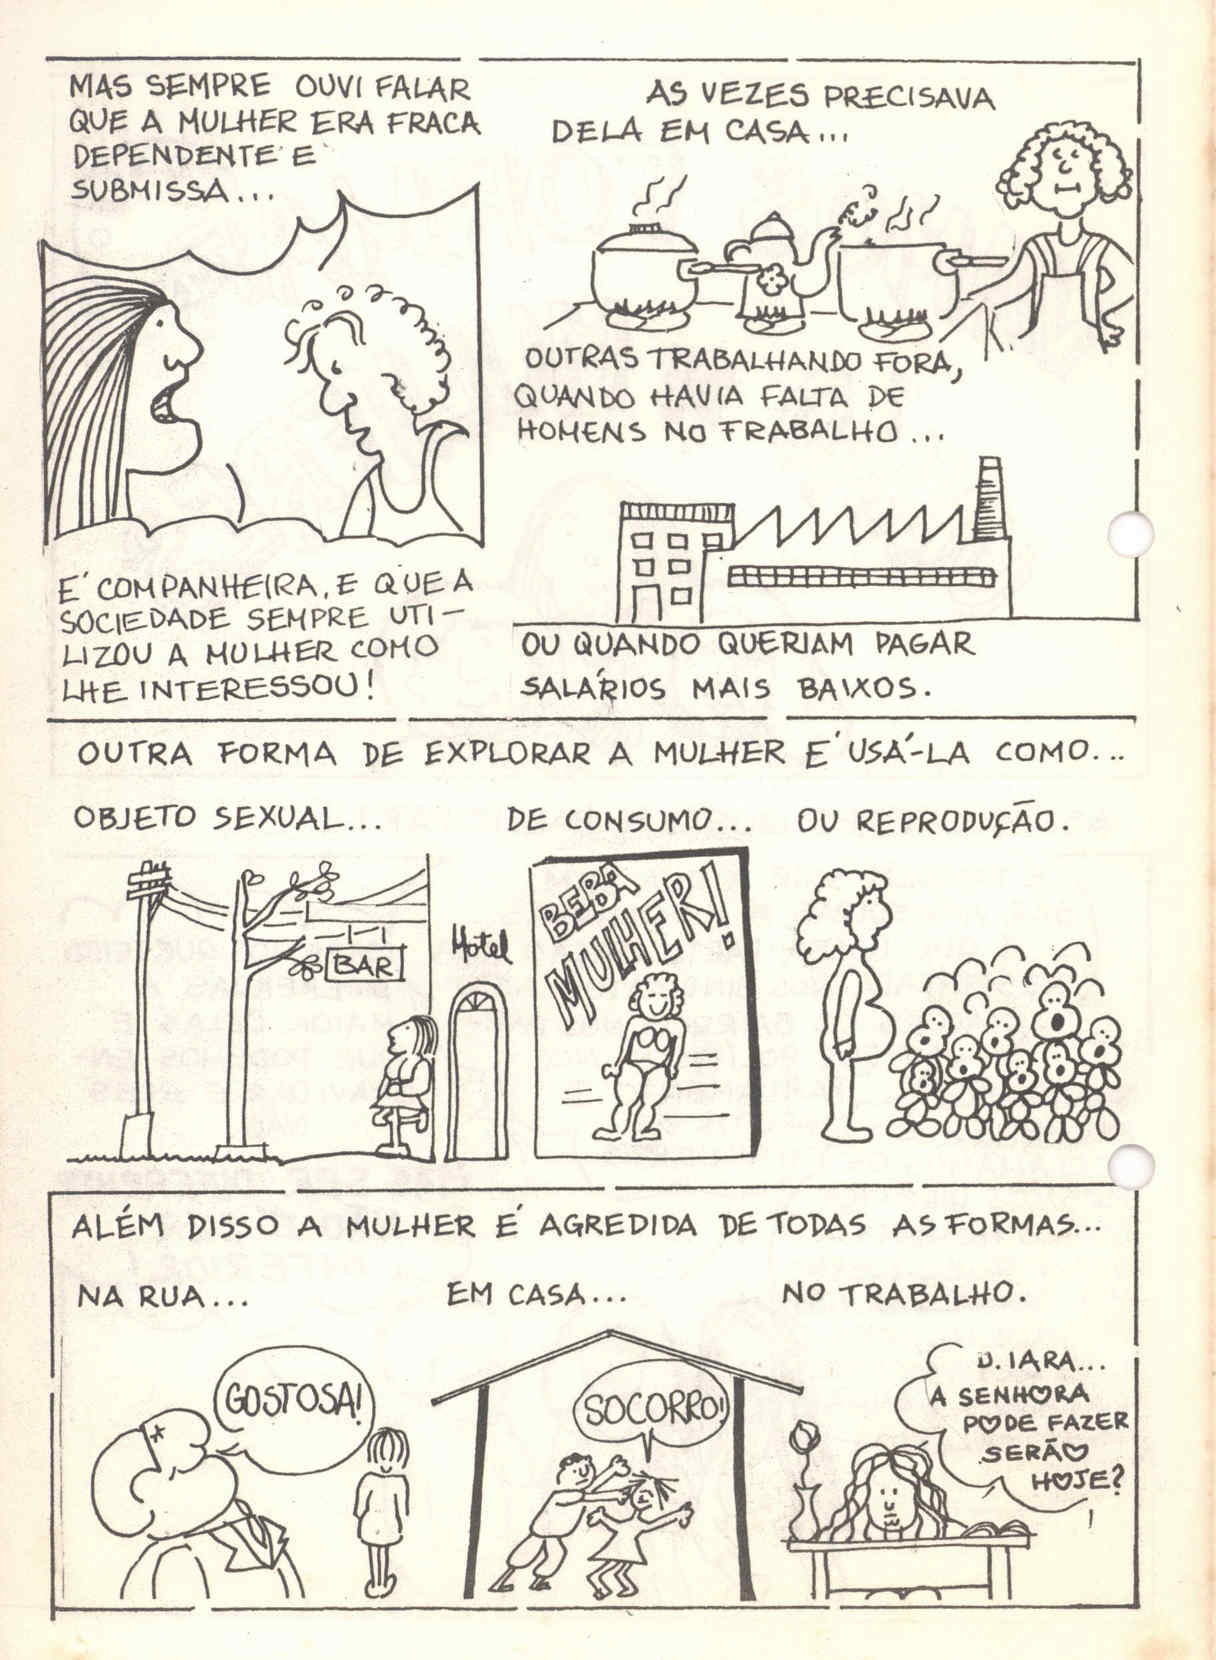 MAS SEMPRE OUVI FALAR
QUE A MULHER ERA FRACA
DEPENDENTE E
SUBMISSA...
É COMPANHEIRA, E QUE A
SOCIEDADE SEMPRE UTI-
LIZOU A MULHER COMO
LHE INTERESSOU!
AS VEZES PRECISAVA
DELA EM CASA...
OUTRAS TRABALHANDO FORA,
QUANDO HAVIA FALTA DE
HOMENS NO TRABALHO...
OU QUANDO QUERIAM PAGAR
SALÁRIOS MAIS BAIXOS.
OUTRA FORMA DE EXPLORAR A MULHER É USÁ-LA COMO...
OBJETO SEXUAL...
BAR
Hotel
DE CONSUMO...
BEBA
MULHER!
OU REPRODUÇÃO.
ALÉM DISSO A MULHER É AGREDIDA DE TODAS AS FORMAS...
NA RUA...
GOSTOSA!
EM CASA...
SOCORRO!
NO TRABALHO.
D. IARA...
A SENHORA
PODE FAZER
SERÃO
HOJE?